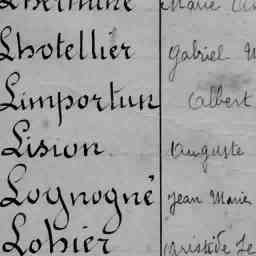 Lhermine Marie
Lhotellier Gabriel
Limportun Albert
Lision Auguste
Lognogné Jean Marie
Lohier Aristide Le